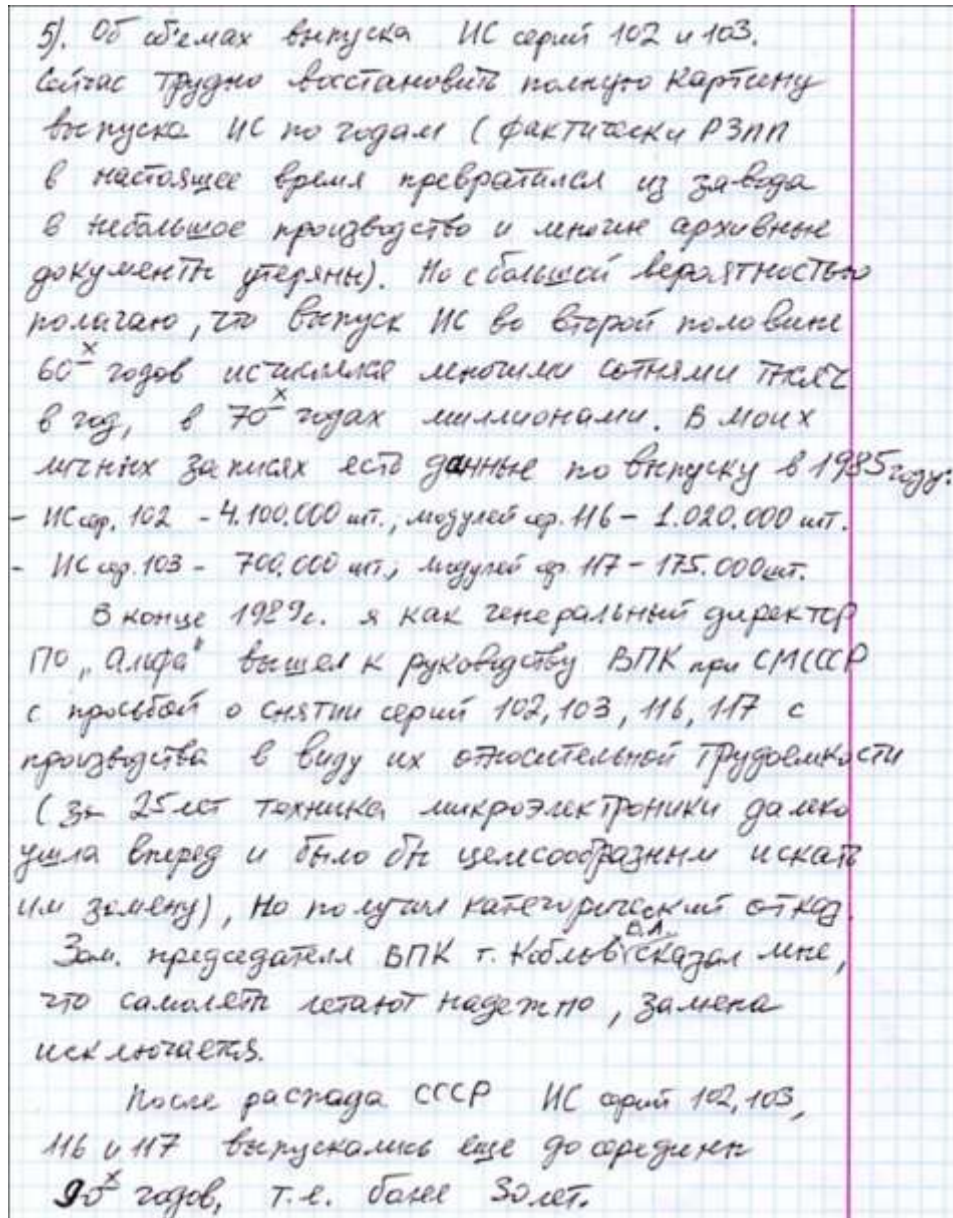 5). Об об'емах выпуска ИС серий 102 и 103.
Сейчас трудно восстановить полную картину
выпуска ИС по годам (фактически РЗПП
в настоящее время превратился из завода
в небольшое производство и многие архивные
документы утеряны). Но с большой вероятностью
полагаю, что выпуск ИС во второй половине
60х годов исчислялся многими сотнями тысяч
в год, в 70х годах миллионами. В моих
личных записях есть данные по выпуску в 1985 году:
- ИС сер. 102 - 4.100.000 шт., модулей сер. 116 - 1.020.000 шт.
- ИС сер. 103 - 700.000 шт., модулей сер. 117 - 175.000 шт.
В конце 1989г. я как генеральный директор
ПО „Альфа" вышел к руководству ВПК при СМ СССР
с просьбой о снятии серий 102, 103, 116, 117 с
производства в виду их относительной трудоемкости
(за 25 лет техника микроэлектроники далеко
ушла вперед и было бы целесообразным искать
им замену), но получил категорический отказ.
Зам. председателя ВПК т. Коблов сказал мне,
что самолеты летают надежно, замена
исключается.
После распада СССР ИС серий 102, 103,
116 и 117 выпускались еще до середины
90х годов, т.е. более 30 лет.